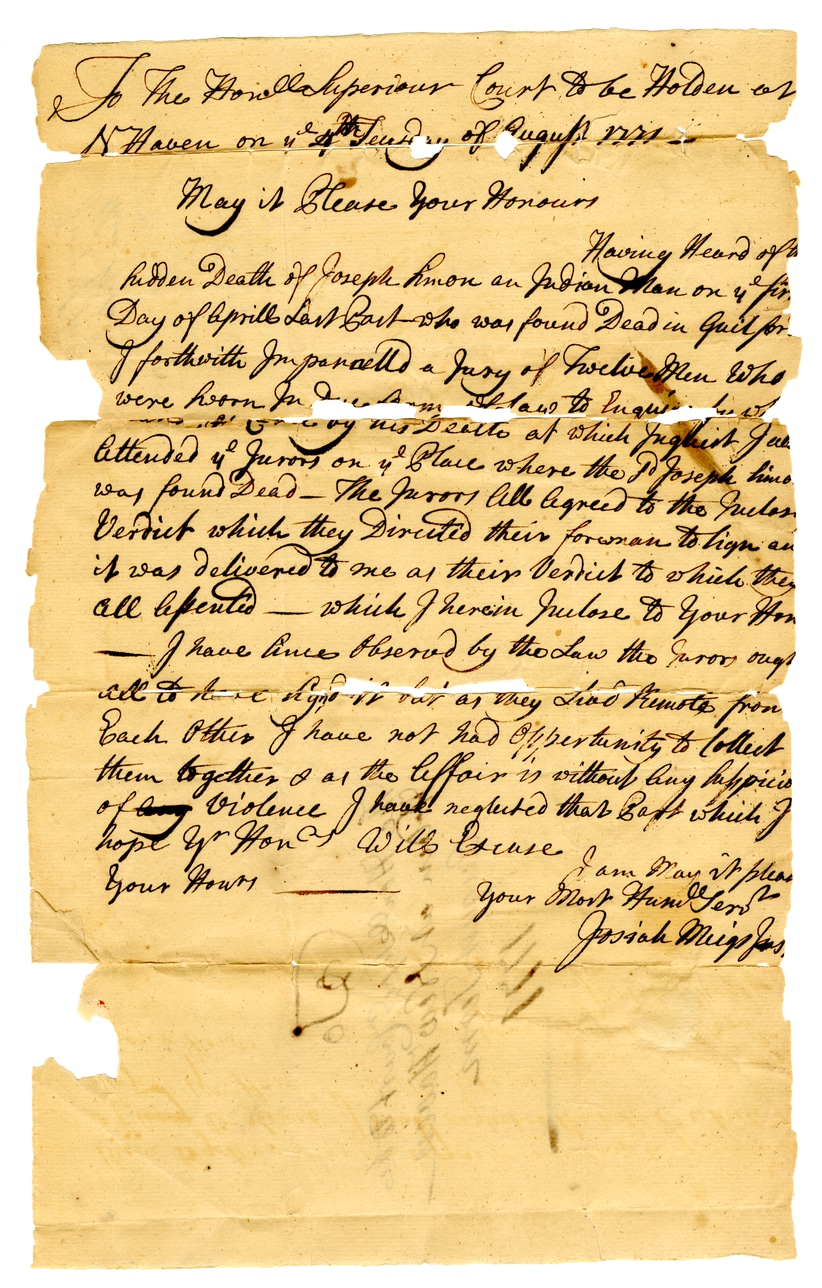 To The Honll Superiour Court to be Holden at
N Haven on ye 4th Tuesday of August 1771
May it Please Your Honours
Having Heard of th
Sudden Death of Joseph Simon an Indian Man on ye firs
Day of Aprill Last Past who was found Dead in Guilfor
I forthwith Imparielld a Jury of Twelve Men Who
were Sworn In Due form of Law to Enquire
by his Death at which Inquist I al
Attended ye Jurors on ye Place where the Sd Joseph Simo
was found Dead — The Jurors All Agreed to the Inclos
Verdict which they Directed their forman to Sign an
it was delivered to me as their Verdict to which they
all Assented — which I herein Inclose to Your Hon
— I have Since Observed by the Law the Jurors ougt
all to have signd it but as they Livd Remote from
Each Other I have not had Oppertunity to Collect
them together & as the Affair is without Any Suspicio
of any Violence I have neglected that Part which I
hope Yr Honrs Will Excuse
I am May it pleas
Your Honrs
Your Most Humll Servt
Josiah Meigs Jus